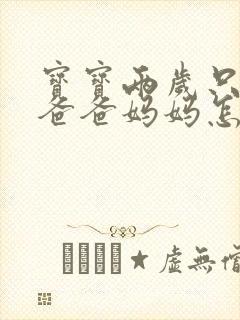 寶寶兩歲只
爸爸媽媽怎
★虛無僧